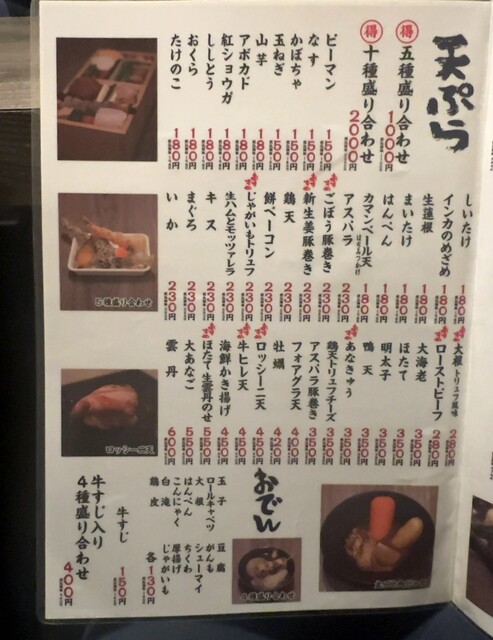 天ぷら
得 五種盛り合わせ 1000円
得 十種盛り合わせ 2000円
ピーマン 150円
なす 150円
かぼちゃ 150円
玉ねぎ 150円
山芋 180円
アボカド 180円
紅ショウガ 180円
ししとう 180円
おくら 180円
たけのこ 180円
しいたけ 180円
インカのめざめ 180円
生蓮根 180円
まいたけ 180円
はんぺん 180円
カマンベール天 180円
アスパラ 230円
ごぼう豚巻き 230円
新生姜豚巻き 230円
鶏天 230円
餅ベーコン 230円
じゃがいもトリュフ 230円
生ハムとモッツァレラ 230円
キス 230円
まぐろ 230円
いか 230円
5種盛り合わせ
大根 トリュフ風味 280円
ローストビーフ 280円
大海老 350円
ほたて 350円
明太子 350円
鴨天 350円
あなきゅう 350円
鶏天トリュフチーズ 350円
アスパラ豚巻き 350円
フォアグラ天 400円
牡蠣 400円
ロッシーニ天 450円
牛ヒレ天 450円
海鮮かき揚げ 450円
ほたて生雲丹のせ 550円
大あなご 550円
雲丹 600円
ロッシーニ天
おでん
玉子
ロールキャベツ
大根
はんぺん
こんにゃく
白滝
鶏皮
豆腐
がんも
シューマイ
ちくわ
厚揚げ
じゃがいも
各130円
牛すじ 150円
牛すじ入り
4種盛り合わせ 400円